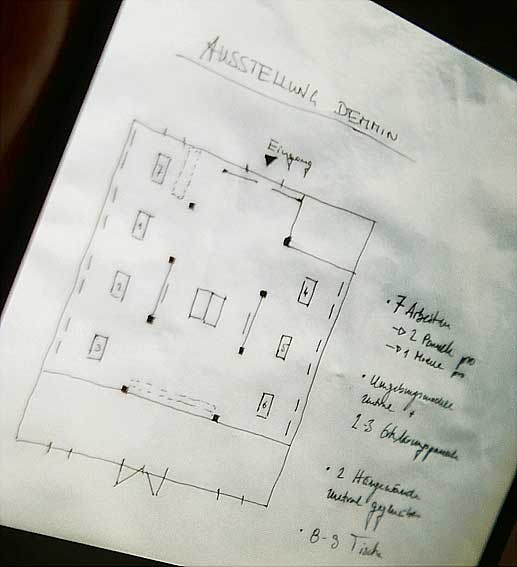 AUSSTELLUNG DEMMIN
Eingang
7
1
2
3
4
5
6
• 7 Arbeiten
→ 2 Panele pro
→ 1 Modell pro
• Umgebungsmodell
mitte +
2-3 Erklärungspanele
• 2 Hängewände
zentral
• 8-9 Tische